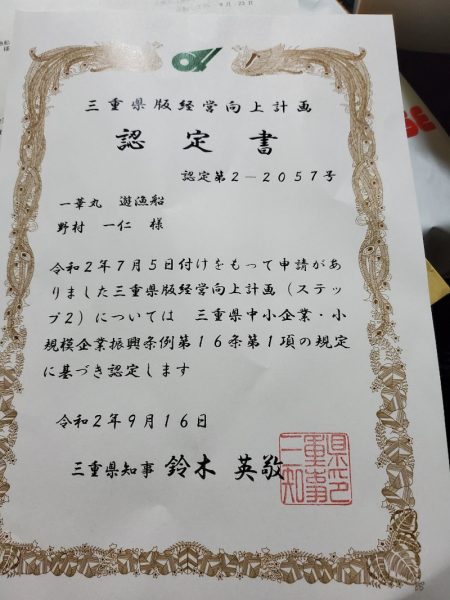 9月23日
三重県版経営向上計画
認定書
認定第2-2057号
一華丸 遊漁船
野村 一仁 様
令和2年7月5日付けをもって申請があ
りました三重県版経営向上計画(ステッ
プ2)については 三重県中小企業・小
規模企業振興条例第16条第1項の規定
に基づき認定します
令和2年9月16日
三重県知事 鈴木 英敬
三重県知事印